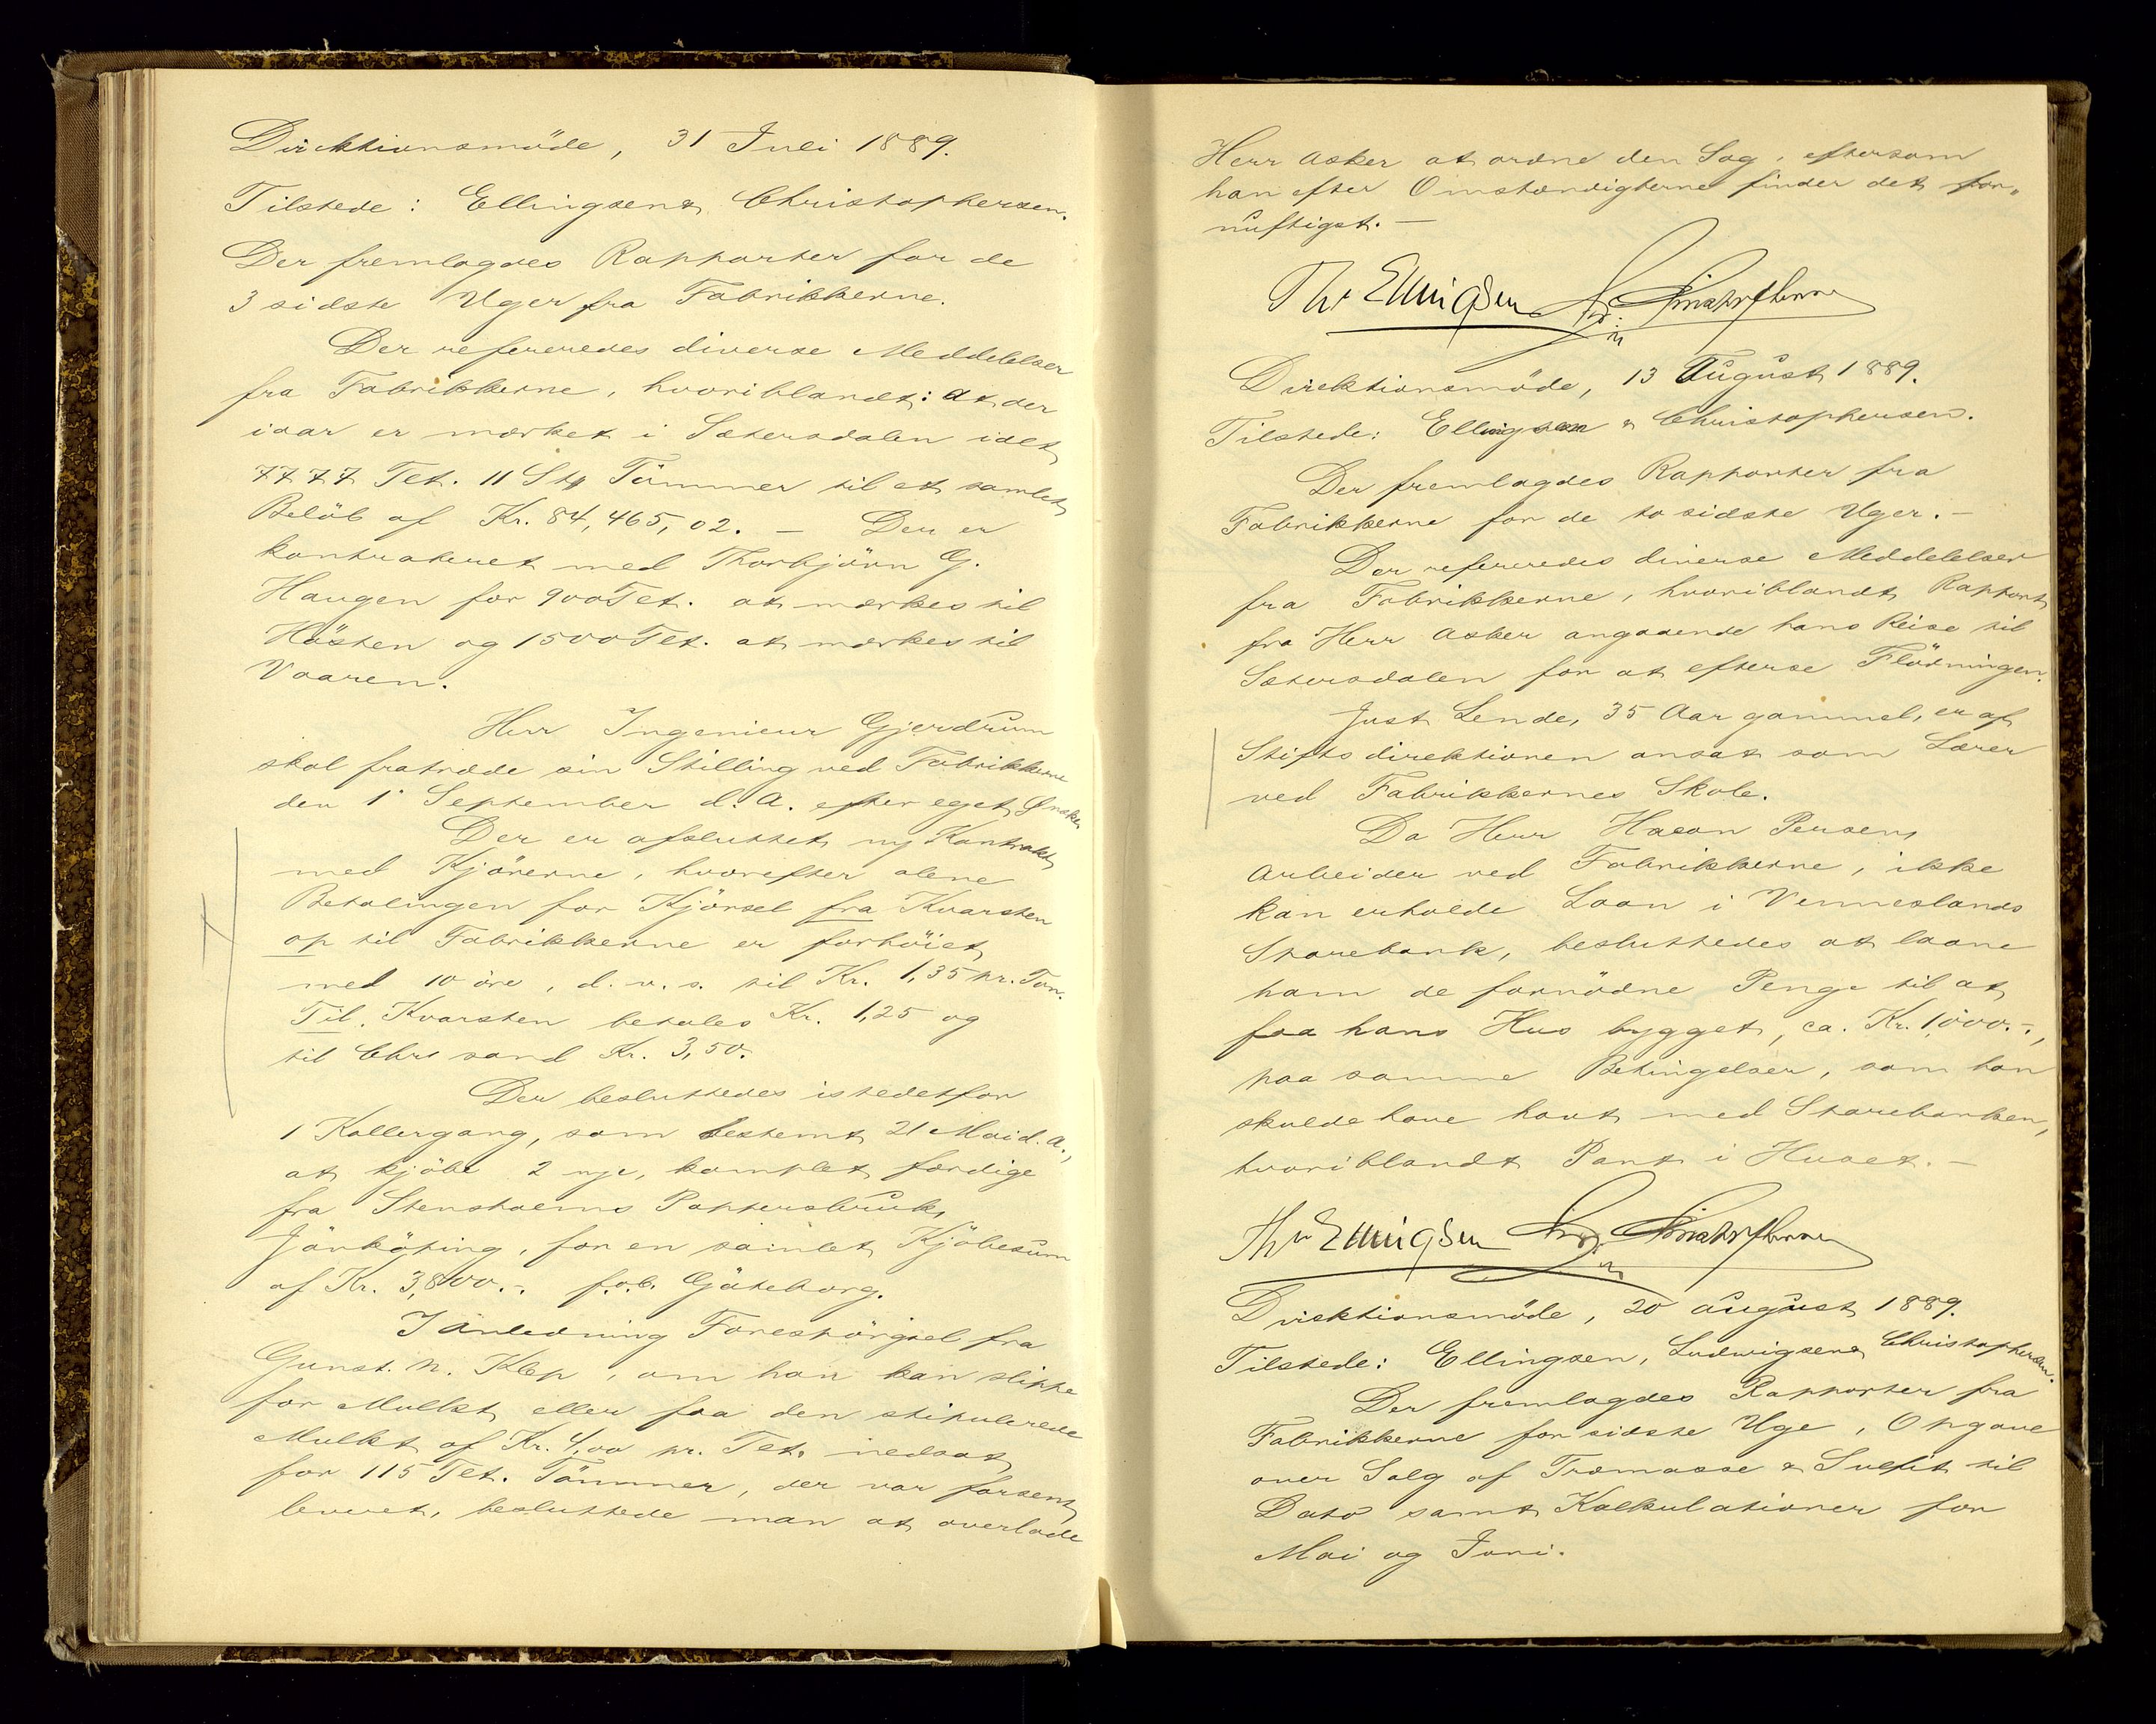 Direktionsmöde, 31 Juli 1889.
Tilstede: Ellingsen & Christophersen.
Der fremlagdes Rapporter for de
3 sidste Uger fra Fabrikkerne.
Der refereredes diverse Meddelelser
fra Fabrikkerne, hvoriblandt: At der
iaar er mærket i Sætersdalen ialt
7777 Tet. 11 Stk Tömmer til et samlet
Belöb af Kr. 84,465,02. — Der er
kontrakeret med Thorbjörn G.
Haugen for 900 Tet. at mærkes til
Hösten og 1500 Tet. at mærkes til
Vaaren.
Herr Ingenieur Gjerdrum
skal fratræde sin Stilling ved Fabrikkerne
den 1' September d. A. efter eget Ønske,
Der er afsluttet ny Kontrakt
med Kjörerne, hvorefter alene
Betalingen for Kjörsel fra Kvarsten
op til Fabrikkerne er forhöiet
med 10 öre, d. v. s. til Kr. 1,35 pr. Ton.
Til Kvarsten betales Kr. 1,25 og
til Chrs sand Kr. 3,50.
Der besluttedes istedetfor
1 Kollergang, som bestemt 21 Mai d. A.,
at kjöbe 2 nye, komplet færdige
fra Stensholms Pappersbruk,
Jönköping, for en samlet Kjöbesum
af Kr. 3,800.-. f.o.b. Göteborg.
I Anledning Forespörgsel fra
Gunst. N. Klep, om han kan slippe
for Mulkt eller faa den stipulerede
Mulkt af Kr. 4,00 pr. Tet. nedsat
for 115 Tet. Tömmer, der var forsent
leveret, besluttede man at overlade
Herr Asker at ordne den Sag, eftersom
han efter Omstændigterne finder det for„
nuftigst. —
Thr Ellingsen Chr. Christophersen
Direktionsmöde, 13 August 1889.
Tilstede: Ellingsen & Christophersen.
Der fremlagdes Rapporter fra
Fabrikkerne for de to sidste Uger. —
Der refereredes diverse Meddelelser
fra Fabrikkerne, hvoriblandt Rapport
fra Herr Asker angaaende hans Reise til
Sætersdalen for at efterse Flödningen.
Just Lende, 35 Aar gammel, er af
Stiftsdirektionen ansat som Lærer
ved Fabrikkernes Skole.
Da Herr Hacon Persen,
Arbeider ved Fabrikkerne, ikke
kan erholde Laan i Vennesland
Sparebank, besluttedes at laane
ham de fornödne Penge til at
faa hans Hus bygget, ca. Kr. 1000.-,
paa samme Betingelser, som han
skulde have havt med Sparebanken,
hvoriblandt Pant i Huset. —
Thr Ellingsen Chr. Christophersen
Direktionsmöde, 20 August 1889.
Tilstede: Ellingsen, Ludwigsen & Christophersen.
Der fremlagdes Rapporter fra
Fabrikkerne for sidste Uge, Opgave
over Salg af Træmasse & Sulfit til
Dato samt Kalkulationer for
Mai og Juni.